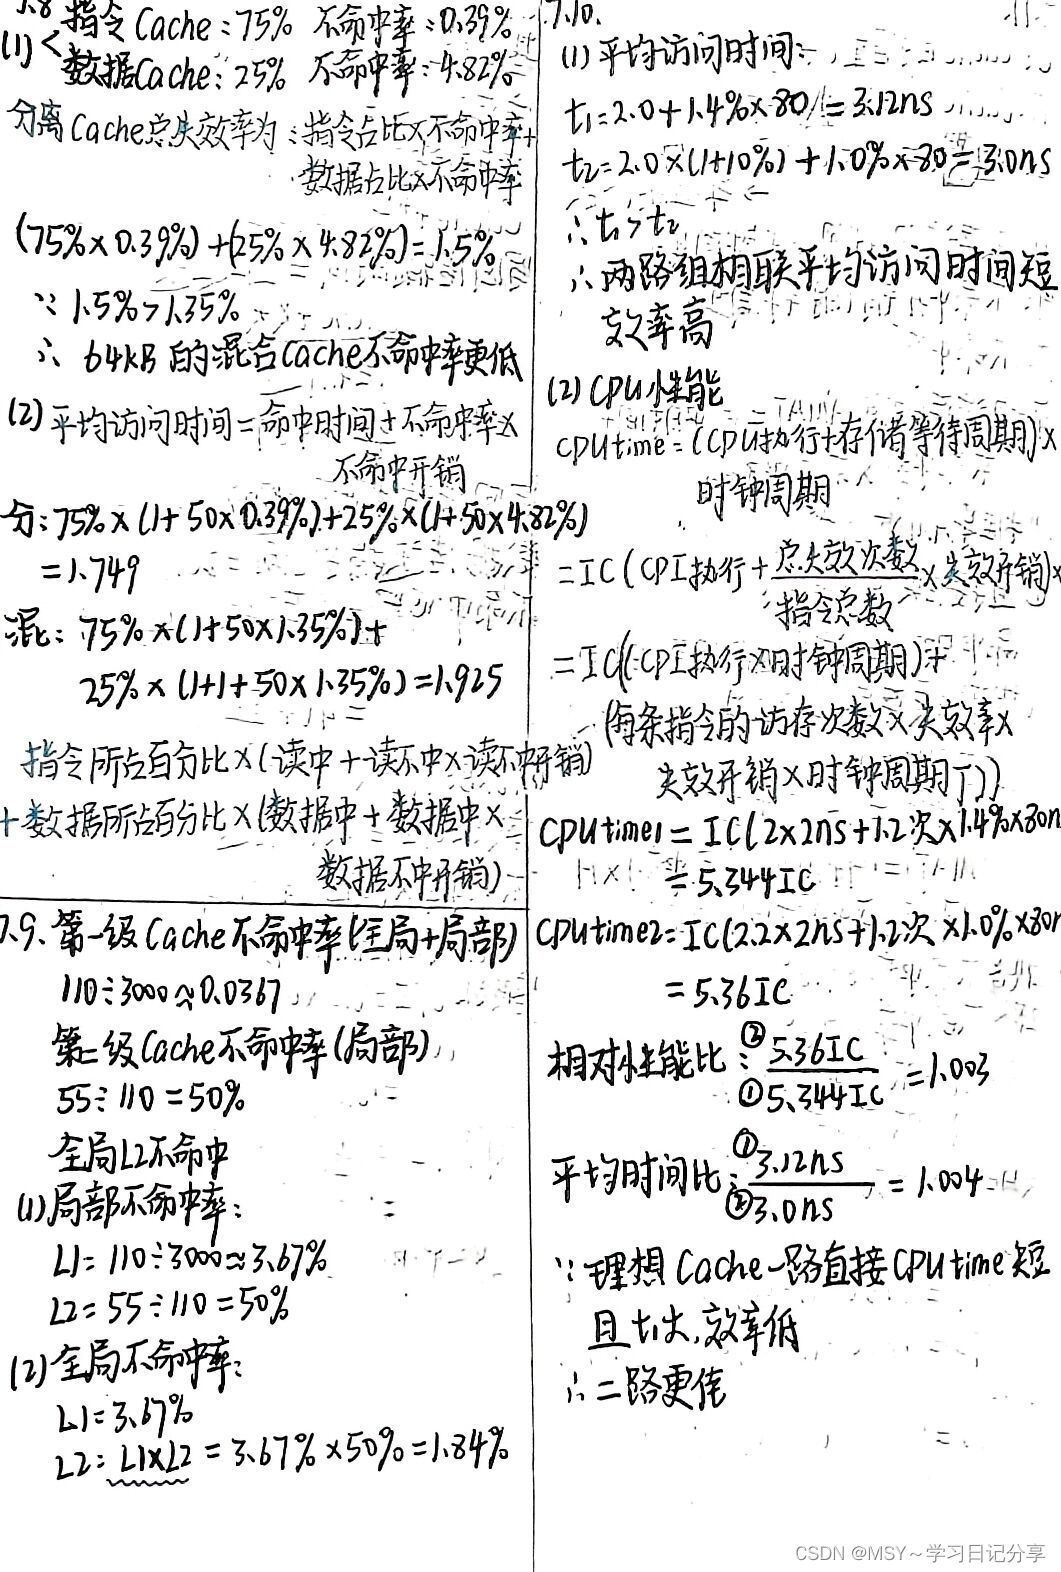 7.8 指令Cache:75% 不命中率:0.39%
(1) <
数据Cache:25% 不命中率:4.82%
分离Cache总失效率为:指令占比×不命中率+
数据占比×不命中率
(75%×0.39%)+(25%×4.82%)=1.5%
∵ 1.5%>1.35%
∴ 64kB的混合Cache不命中率更低
(2) 平均访问时间=命中时间+不命中率×
不命中开销
分:75%×(1+50×0.39%)+25%×(1+50×4.82%)
=1.749
混:75%×(1+50×1.35%)+
25%×(1+1+50×1.35%)=1.925
指令所占百分比×(读中+读不中×读不中开销)
+数据所占百分比×(数据中+数据中×
数据不中开销)
7.9. 第一级Cache不命中率(全局+局部)
110÷3000≈0.0367
第二级Cache不命中率(局部)
55÷110=50%
全局L2不命中
(1)局部不命中率:
L1=110÷3000≈3.67%
L2=55÷110=50%
(2)全局不命中率:
L1=3.67%
L2:L1×L2=3.67%×50%=1.84%
7.10.
(1) 平均访问时间:
t1=2.0+1.4%×80=3.12ns
t2=2.0×(1+10%)+1.0%×80=3.0ns
∴t1>t2
∴两路组相联平均访问时间短
效率高
(2) CPU性能
CPUtime=(CPU执行+存储等待周期)×
时钟周期
=IC(CPI执行+总失效次数/指令总数×失效开销)×
=IC((CPI执行×时钟周期)+
(每条指令的访存次数×失效率×
失效开销×时钟周期))
CPUtime1=IC(2×2ns+1.2次×1.4%×80n
=5.344IC
CPUtime2=IC(2.2×2ns+1.2次×1.0%×80n
=5.36IC
相对性能比:②5.36IC/①5.344IC=1.003
平均时间比:①3.12ns/②3.0ns=1.004
∵理想Cache一路直接CPUtime短
且t1大,效率低
∴二路更佳
CSDN @MSY~学习日记分享